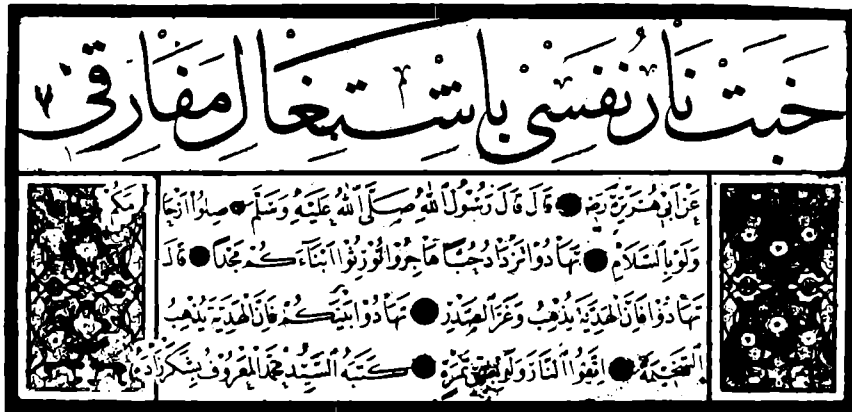 خَبَتْ نَارُ نَفْسِي بِاشْتِعَالِ مَفَارِقِي
عَنْ أَبِي هُرَيْرَةَ رَضِيَ قَالَ قَالَ رَسُولُ اللهِ صَلَّى اللهُ عَلَيْهِ وَسَلَّمَ صِلُوا أَرْحَامَكُمْ
وَلَوْ بِالسَّلَامِ تَهَادُوا تَزْدَادُوا حُبًّا هَاجِرُوا تُورِثُوا أَبْنَاءَكُمْ مَجْدًا قَالَ
تَهَادُوا فَإِنَّ الْهَدِيَّةَ تُذْهِبُ وَغَرَ الصَّدْرِ تَهَادُوا بَيْنَكُمْ فَإِنَّ الْهَدِيَّةَ تُذْهِبُ
السَّخِيمَةَ اتَّقُوا النَّارَ وَلَوْ بِشِقِّ تَمْرَةٍ كَتَبَهُ السَّيِّدُ مُحَمَّدٌ الْمَعْرُوفُ بِشَكَرْزَادَه